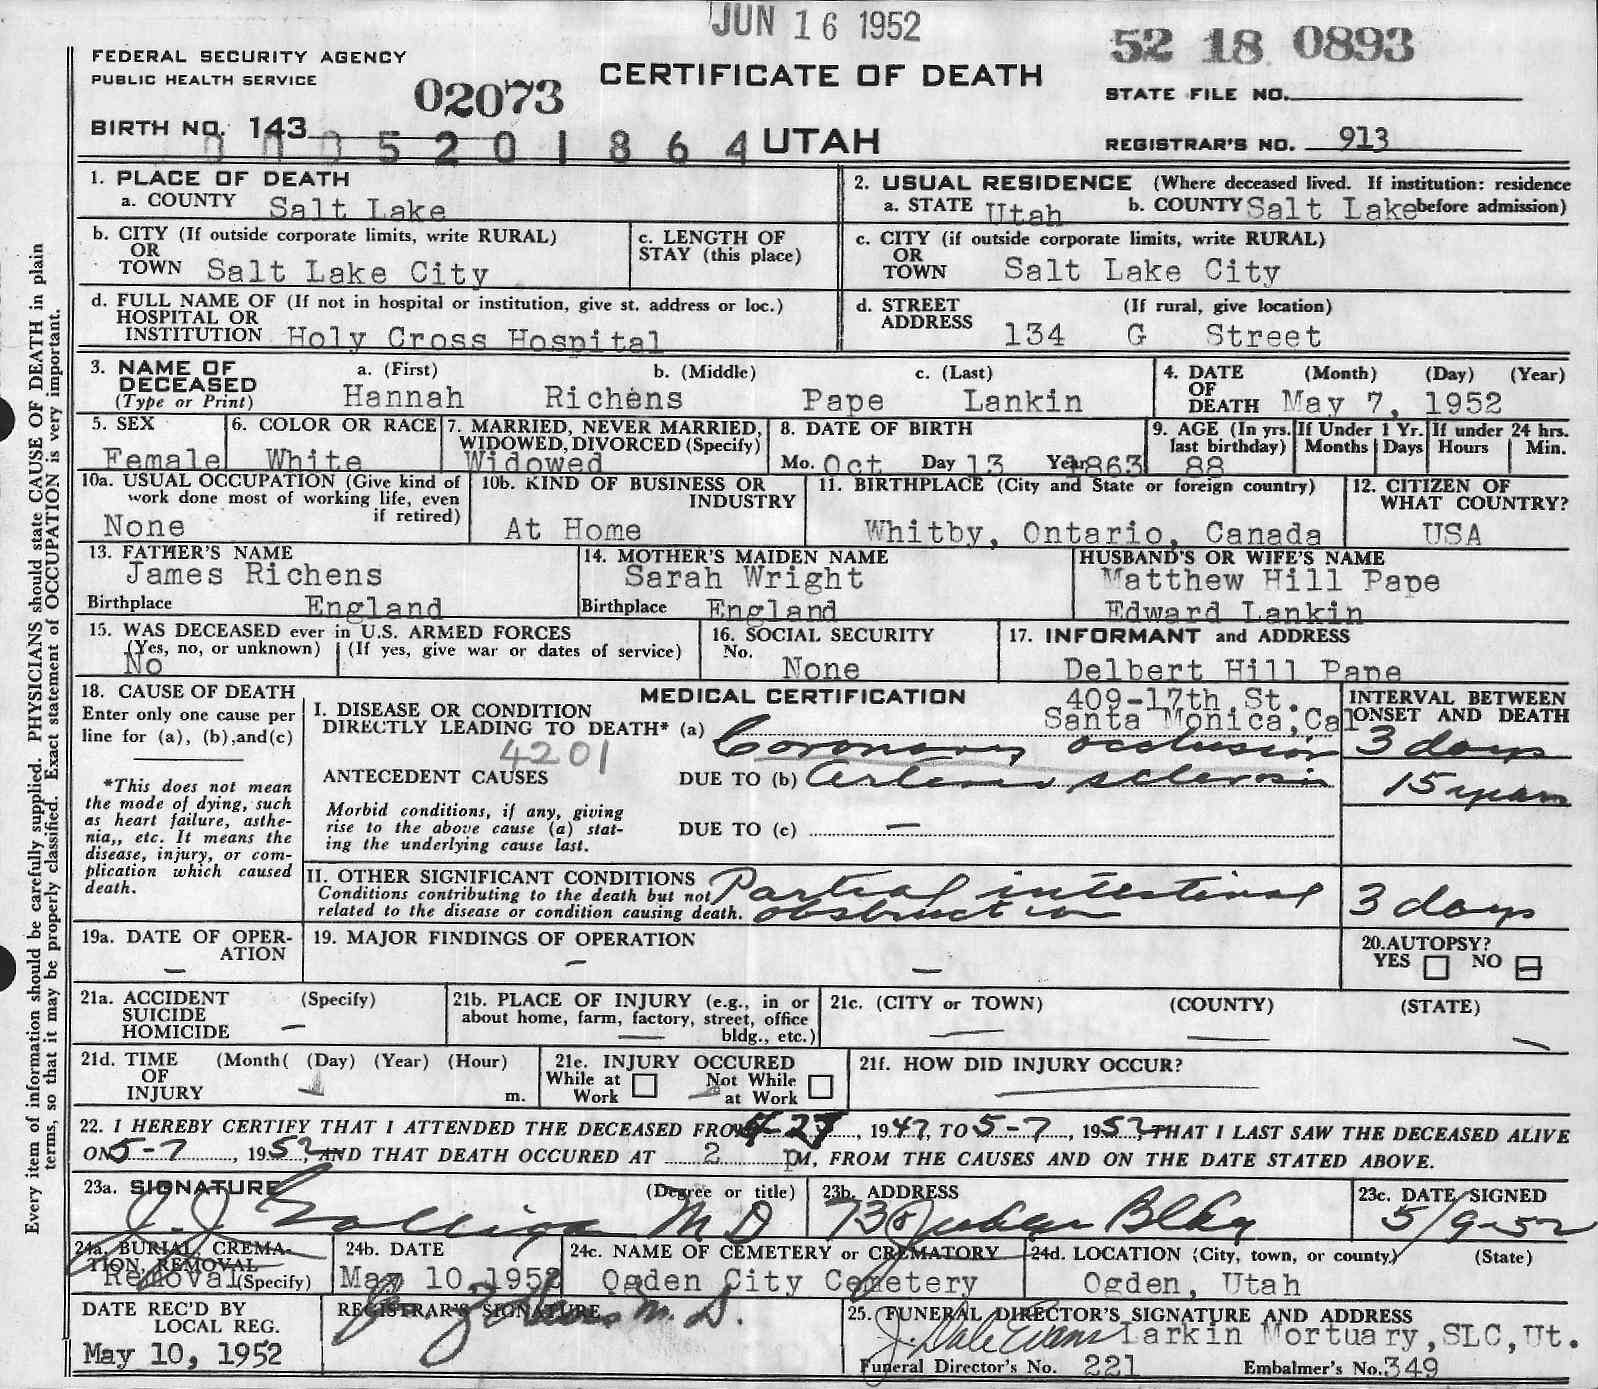 JUN 16 1952
52 18 0893
FEDERAL SECURITY AGENCY
PUBLIC HEALTH SERVICE
02073
CERTIFICATE OF DEATH
STATE FILE NO.
BIRTH NO. 143
0 0 0 5 2 0 1 8 6 4 UTAH
REGISTRAR'S NO. 913
1. PLACE OF DEATH
a. COUNTY Salt Lake
2. USUAL RESIDENCE (Where deceased lived. If institution: residence
a. STATE Utah b. COUNTY Salt Lake before admission)
b. CITY (If outside corporate limits, write RURAL)
OR
TOWN Salt Lake City
c. LENGTH OF
STAY (this place)
c. CITY (if outside corporate limits, write RURAL)
OR
TOWN Salt Lake City
d. FULL NAME OF (If not in hospital or institution, give st. address or loc.)
HOSPITAL OR
INSTITUTION Holy Cross Hospital
d. STREET (If rural, give location)
ADDRESS 134 G Street
3. NAME OF DECEASED
(Type or Print)
a. (First) b. (Middle) c. (Last)
Hannah Richens Pape Lankin
4. DATE (Month) (Day) (Year)
OF
DEATH May 7, 1952
5. SEX
Female
6. COLOR OR RACE
White
7. MARRIED, NEVER MARRIED,
WIDOWED, DIVORCED (Specify)
Widowed
8. DATE OF BIRTH
Mo. Oct Day 13 Year 1863
9. AGE (In yrs. last birthday)
88
If Under 1 Yr.
Months Days
If under 24 hrs.
Hours Min.
10a. USUAL OCCUPATION (Give kind of
work done most of working life, even
if retired)
None
10b. KIND OF BUSINESS OR
INDUSTRY
At Home
11. BIRTHPLACE (City and State or foreign country)
Whitby, Ontario, Canada
12. CITIZEN OF
WHAT COUNTRY?
USA
13. FATHER'S NAME
James Richens
Birthplace England
14. MOTHER'S MAIDEN NAME
Sarah Wright
Birthplace England
HUSBAND'S OR WIFE'S NAME
Matthew Hill Pape
Edward Lankin
15. WAS DECEASED ever in U.S. ARMED FORCES
(Yes, no, or unknown) (If yes, give war or dates of service)
No
16. SOCIAL SECURITY
No.
None
17. INFORMANT and ADDRESS
Delbert Hill Pape
409-17th St.
Santa Monica, Cal
18. CAUSE OF DEATH
Enter only one cause per
line for (a), (b), and (c)
*This does not mean
the mode of dying, such
as heart failure, asthe-
nia,, etc. It means the
disease, injury, or com-
plication which caused
death.
MEDICAL CERTIFICATION
INTERVAL BETWEEN
ONSET AND DEATH
I. DISEASE OR CONDITION
DIRECTLY LEADING TO DEATH* (a) Coronary occlusion 3 days
4201
ANTECEDENT CAUSES DUE TO (b) Arterio sclerosis 15 years
Morbid conditions, if any, giving
rise to the above cause (a) stat-
ing the underlying cause last.
DUE TO (c) —
II. OTHER SIGNIFICANT CONDITIONS
Conditions contributing to the death but not
related to the disease or condition causing death.
Partial intestinal
obstruction 3 days
19a. DATE OF OPER-
ATION
—
19. MAJOR FINDINGS OF OPERATION
— —
20. AUTOPSY?
YES NO
21a. ACCIDENT (Specify)
SUICIDE
HOMICIDE —
21b. PLACE OF INJURY (e.g., in or
about home, farm, factory, street, office
bldg., etc.)
—
21c. (CITY or TOWN) (COUNTY) (STATE)
— — —
21d. TIME (Month( (Day) (Year) (Hour)
OF
INJURY m.
21e. INJURY OCCURED
While at Work
Not While at Work
21f. HOW DID INJURY OCCUR?
—
22. I HEREBY CERTIFY THAT I ATTENDED THE DECEASED FROM 4-23, 1947, TO 5-7, 1952, THAT I LAST SAW THE DECEASED ALIVE
ON 5-7, 1952 AND THAT DEATH OCCURED AT 2 PM, FROM THE CAUSES AND ON THE DATE STATED ABOVE.
23a. SIGNATURE (Degree or title)
J. J. Galligan MD
23b. ADDRESS
Bldg
23c. DATE SIGNED
5/9-52
24a. BURIAL, CREMA-
TION, REMOVAL
Removal (Specify)
24b. DATE
May 10, 1952
24c. NAME OF CEMETERY or CREMATORY
Ogden City Cemetery
24d. LOCATION (City, town, or county) (State)
Ogden, Utah
DATE REC'D BY
LOCAL REG.
May 10, 1952
REGISTRAR'S SIGNATURE
M. D.
25. FUNERAL DIRECTOR'S SIGNATURE AND ADDRESS
J. Dale Evans Larkin Mortuary, SLC, Ut.
Funeral Director's No. 221 Embalmer's No. 349
Every item of information should be carefully supplied. PHYSICIANS should state CAUSE OF DEATH in plain
terms, so that it may be properly classified. Exact statement of OCCUPATION is very important.